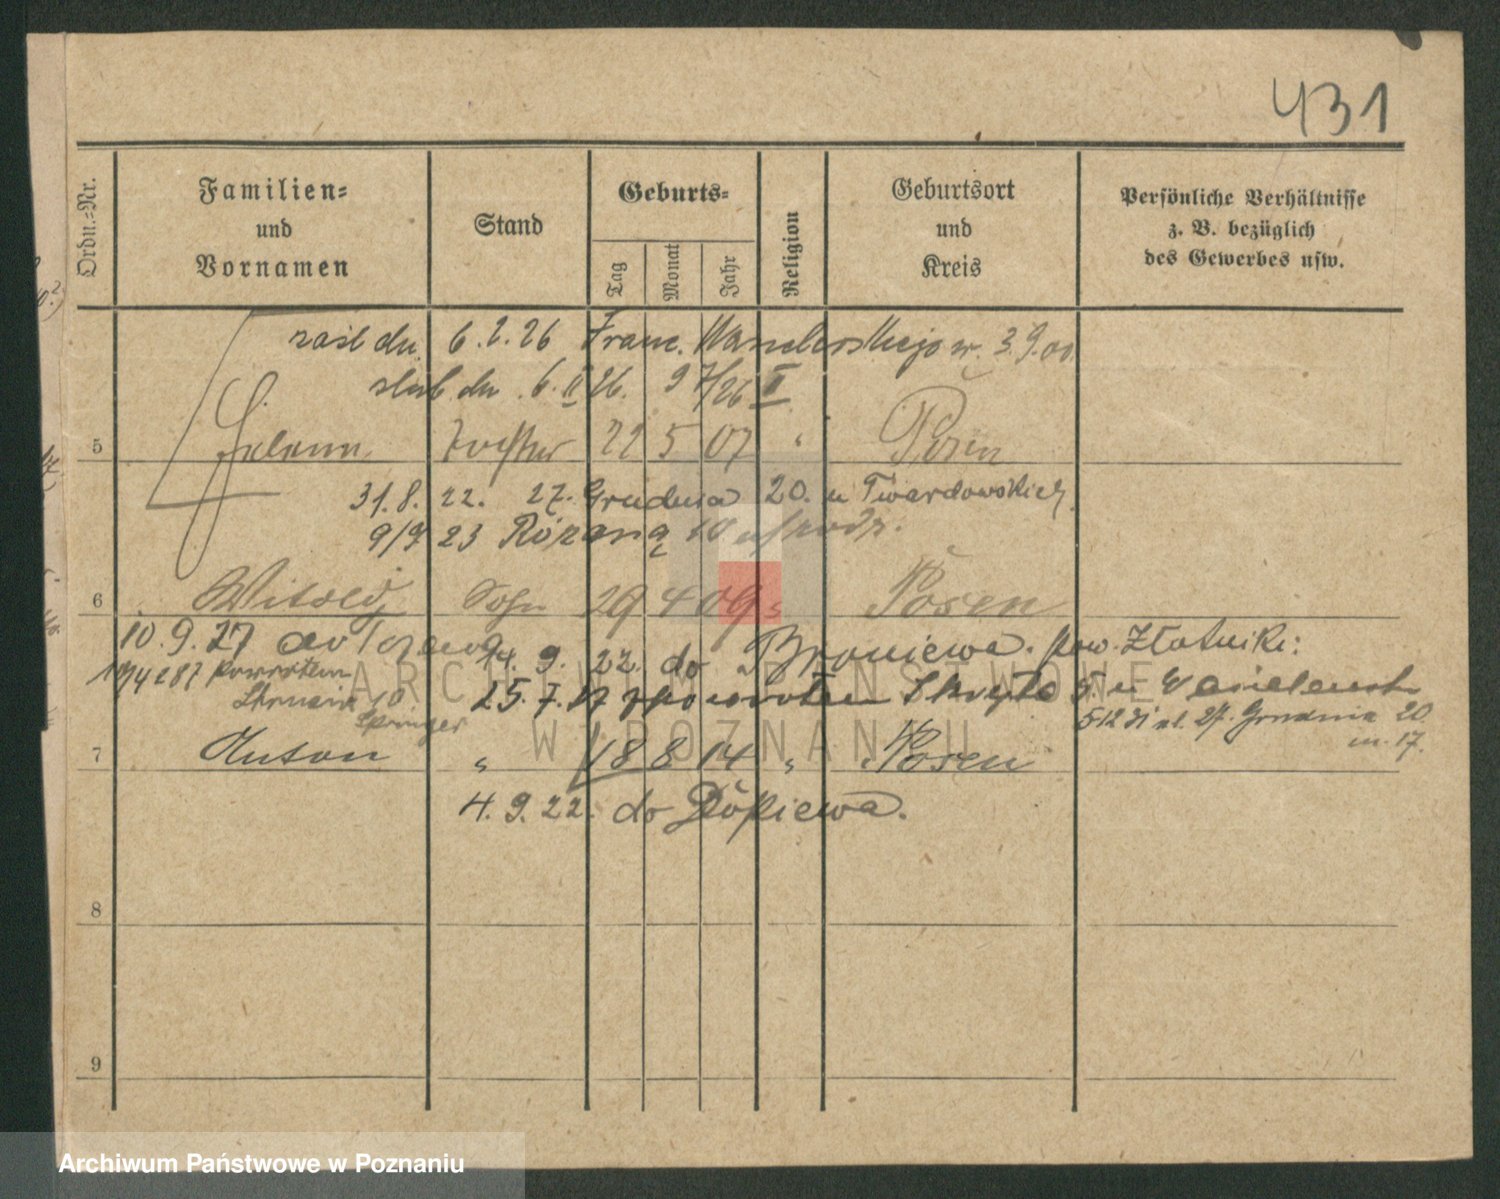 431
Ordn.-Nr.
Familien-
und
Vornamen
Stand
Geburts-
Tag
Monat
Jahr
Religion
Geburtsort
und
Kreis
Persönliche Verhältnisse
z. B. bezüglich
des Gewerbes usw.
6. 2. 26 Franc. 3.9.00
ślub dn. 6. II 26. 9 7/26 II
5 Helene Tochter 22 5 07 " Posen
31. 8. 22. 27. Grudnia 20. u Twardowskich
9/9 23 Różana 10
6 Witold Sohn 29 4 09 " Posen
10. 9. 27 do
14. 9. 22. do Broniewa. pow. Złotniki:
powrotem
25. 7. z powrotem Skryta 5. u
10
Springer
27. Grudnia 20.
m. 17.
7 Anton " 18 8 14 " Posen
4. 9. 22. do Dopiewa.
8
9
ARCHIWUM PAŃSTWOWE
W POZNANIU
Archiwum Państwowe w Poznaniu